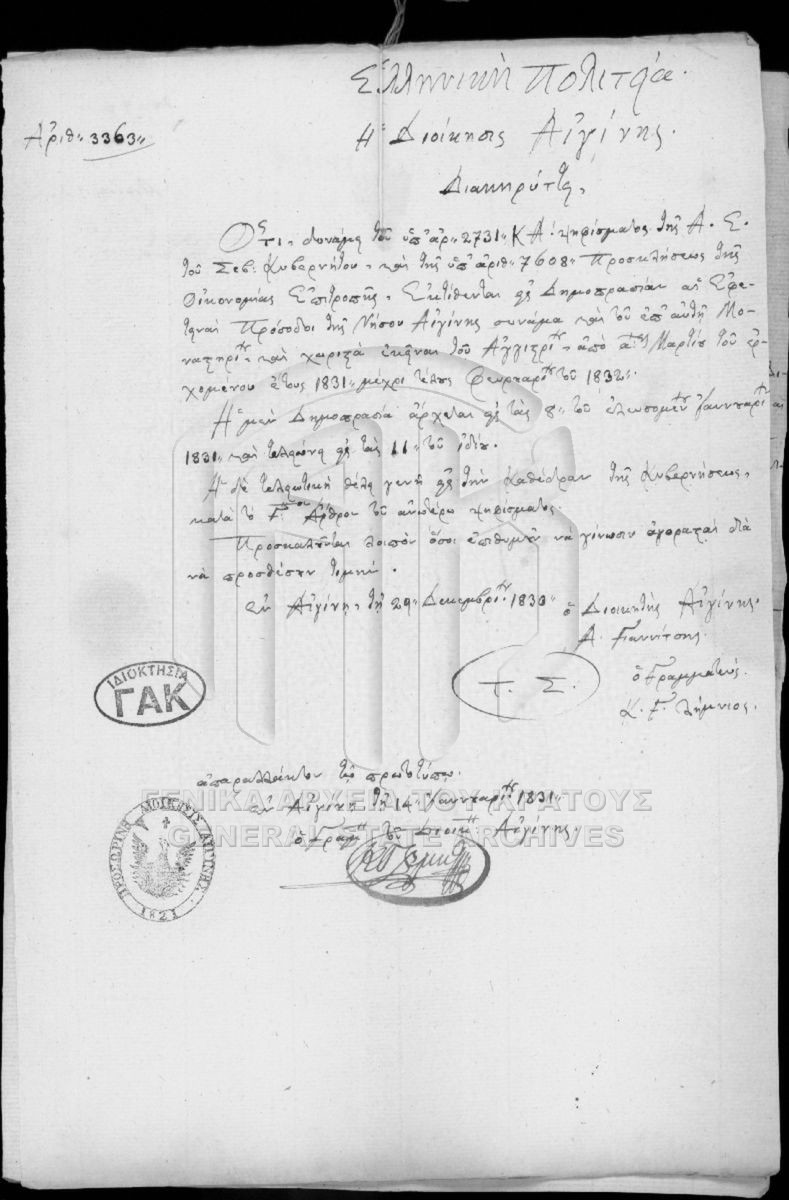 Ἑλληνικὴ Πολιτεία.
Ἀριθ. 3363.
Ἡ Διοίκησις Αἰγίνης.
Διακηρύττει,
Ὅτι, δυνάμει τοῦ ὑπ' ἀρ. 2731 ΚΑ! ψηφίσματος τῆς Α. Ε.
τοῦ Σεβ: Κυβερνήτου, καὶ τῆς ὑπ' ἀριθ. 7608 Προσκλήσεως τῆς
Οἰκονομίας Ἐπιτροπῆς, Ἐκτίθενται εἰς Δημοπρασίαν αἱ Ἐθνι-
Πρόσοδοι τῆς Νήσου Αἰγίνης συνάμα καὶ τοῦ ἐπ' αὐτῇ Μο-
ναστηρί καὶ χωριστὰ ἐκεῖναι τοῦ Ἀγγιστρί, ἀπὸ α Μαρτίου τοῦ ἐρ-
χομένου ἔτους 1831 μέχρι τέλους Φευρουαρίου τοῦ 1832.
Ἡ μὲν Δημοπρασία ἄρχεται εἰς τὰς 8 τοῦ ἐλευσομέν Ἰαννουαρί
1831 καὶ τελειώνει εἰς τὰς 11 τοῦ ἰδίου.
Ἡ δὲ τελειωτικὴ θέλει γενῇ εἰς τὴν καθέδραν τῆς Κυβερνήσεως,
κατὰ τὸ Γ. Ἄρθρον τοῦ ἀνωτέρω ψηφίσματος.
Προσκαλοῦνται λοιπὸν ὅσοι ἐπιθυμοῦν νὰ γίνωσιν ἀγορασταὶ διὰ
νὰ προσθέσουν τιμήν.
Ἐν Αἰγίνῃ, τῇ 29 Δεκεμβρί 1830
ὁ Διοικητὴς Αἰγίνης.
Α. Γιαννίτσης.
Τ. Σ.
ὁ Γραμματεύς.
Κ. Γ. Λήμνιος.
ΙΔΙΟΚΤΗΣΙΑ
ΓΑΚ
ἀπαράλλακτον τῷ πρωτοτύπῳ.
ἐν Αἰγίνῃ τῇ 14 Ἰαννουαρί 1831
ὁ Γραμ τῆς Διοικ Αἰγίνης.
ΓΕΝΙΚΑ ΑΡΧΕΙΑ ΤΟΥ ΚΡΑΤΟΥΣ
GENERAL STATE ARCHIVES
ΠΡΟΣΩΡΙΝΗ ΔΙΟΙΚΗΣΙΣ ΑΙΓΙΝΗΣ
1821